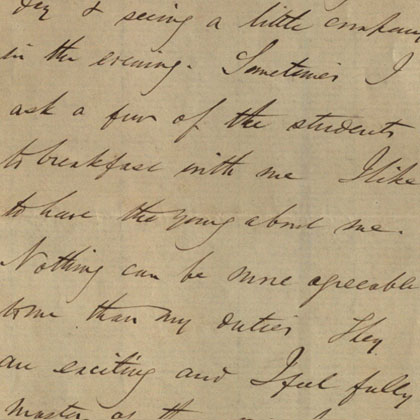 day & seeing a little company
in the evening. Sometimes I
ask a few of the students
to breakfast with me I like
to have the young about me.
Nothing can be more agreeable
to me than my duties They
are exciting and I feel fully
master of the